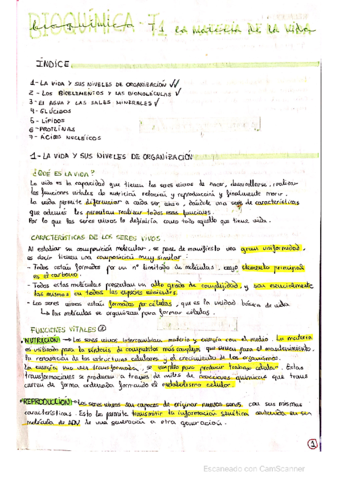 BIOQUÍMICA - 7
1 La materia de la vida
ÍNDICE
1- LA VIDA Y SUS NIVELES DE ORGANIZACIÓN
2- LOS BIOELEMENTOS Y LAS BIOMOLÉCULAS
3- EL AGUA Y LAS SALES MINERALES
4- GLÚCIDOS
5- LÍPIDOS
6- PROTEÍNAS
7- ÁCIDOS NUCLEICOS
1- LA VIDA Y SUS NIVELES DE ORGANIZACIÓN
¿QUÉ ES LA VIDA?
La vida es la capacidad que tienen los seres vivos de nacer, desarrollarse, realizar
las funciones vitales de nutrición relación y reproducción y finalmente morir.
La vida permite diferenciar a cada ser vivo, dándole una serie de características
que además les permiten realizar todas esas funciones.
Por lo que los seres vivos lo definiría como todo aquello que tiene vida.
CARACTERÍSTICAS DE LOS SERES VIVOS
Al estudiar su composición molecular, se pone de manifiesto una gran uniformidad,
es decir tienen una composición muy similar:
- Todos están formados por un nº limitado de moléculas, cuyo elemento principal
es el carbono.
- Todas estas moléculas presentan un alto grado de complejidad, y son esencialmente
las mismas en todas las especies
- Los seres vivos están formados por células, que es la unidad básica de vida
Las moléculas se organizan para formar células.
FUNCIONES VITALES
NUTRICIÓN → Los seres vivos intercambian materia y energía con el medio. La materia
es utilizada para la síntesis de compuestos más complejos que sirven para el mantenimiento,
la renovación de las estructuras celulares y el crecimiento de los organismos.
La energía, una vez transformada, se emplea para producir trabajo celular. Estas
transformaciones se producen a través de miles de reacciones químicas que trans
curren de forma ordenada formando el metabolismo celular.
REPRODUCCIÓN → Los seres vivos son capaces de originar nuevos seres con sus mismas
características. Esto les permite transmitir la información genética contenida en su
molécula de ADN de una generación a otra generación.
1
Escaneado con CamScanner